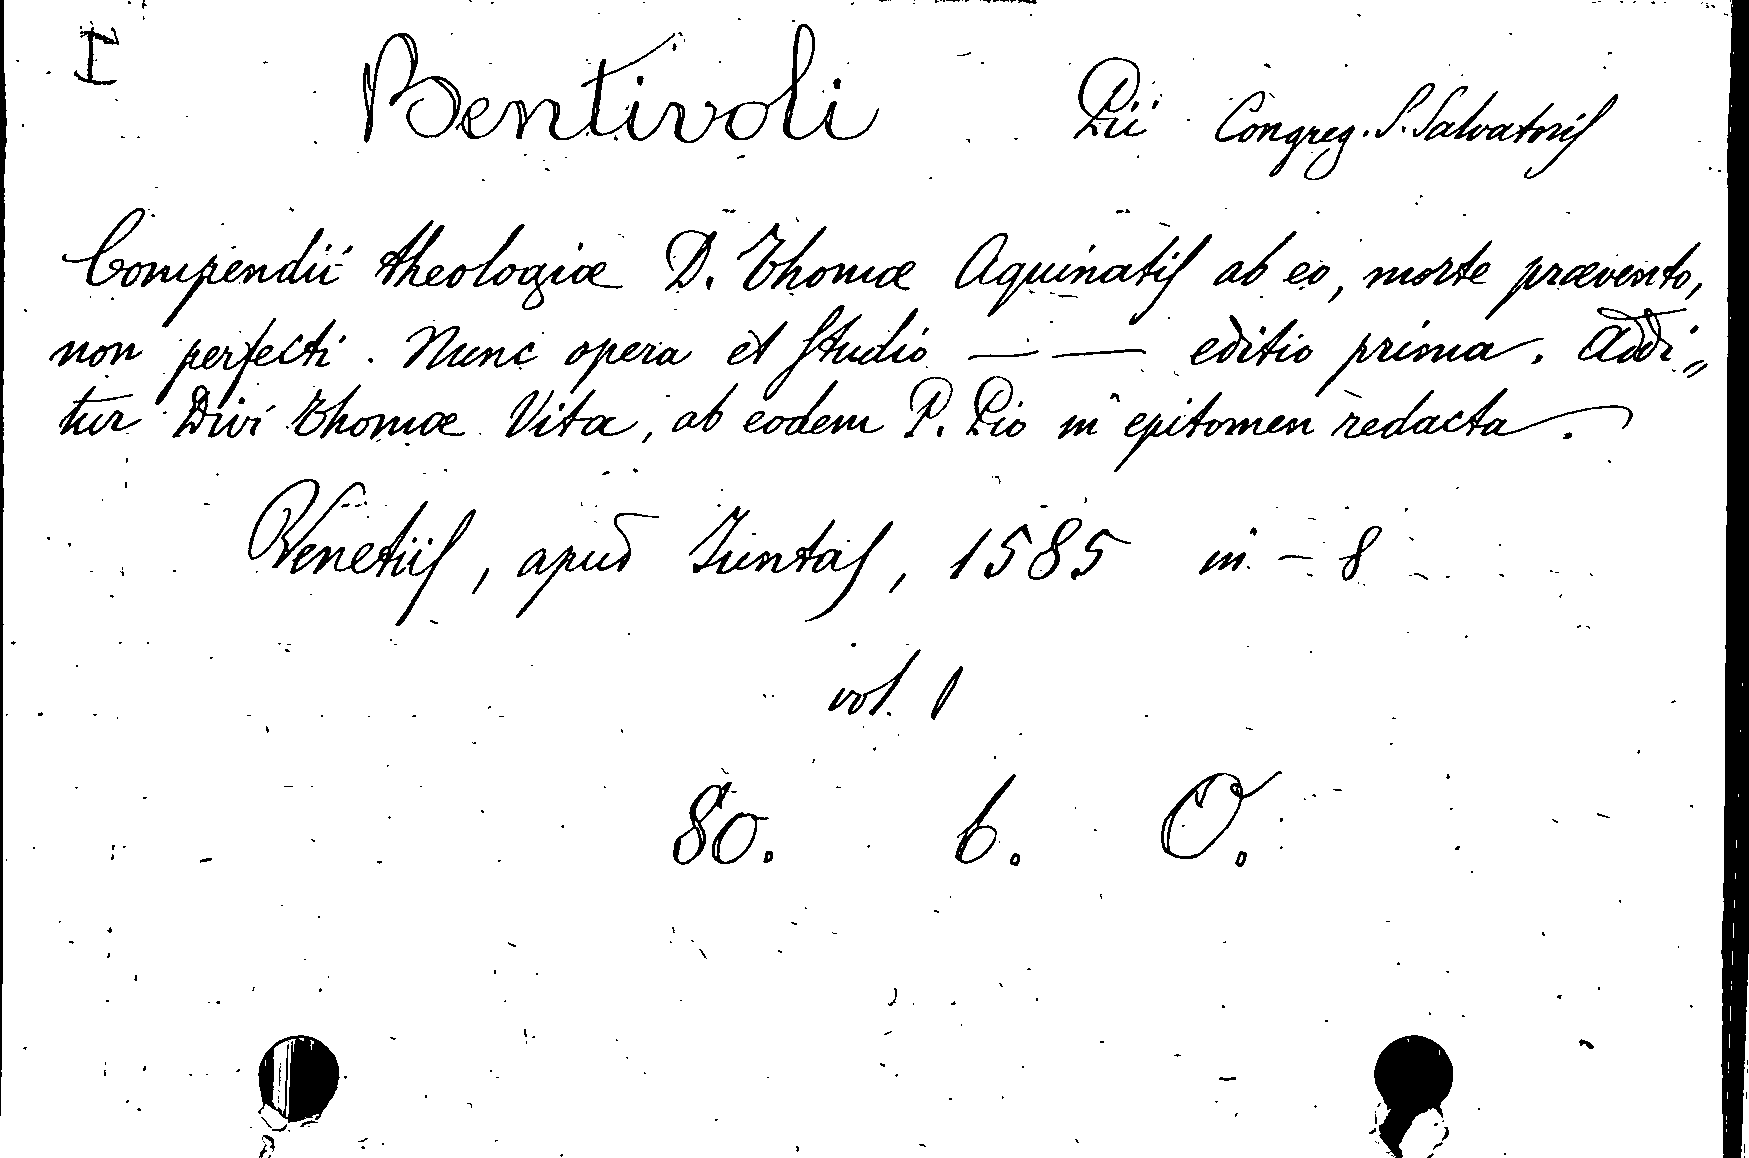 I
Bentivoli Pii Congreg. S. Salvatoris
Compendii theologiæ D. Thomæ Aquinatis ab eo, morte prævento,
non perfecti. Nunc opera et studio — — editio prima. Addi„
tur Divi Thomæ Vita, ab eodem P. Pio in epitomen redacta.
Venetiis, apud Iuntas, 1585 in - 8
vol. 1
80. 6. O.